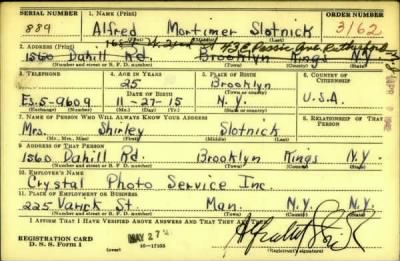 SERIAL NUMBER 1. NAME (Print) ORDER NUMBER
889 Alfred Mortimer Slotnick 3162
(First) (Middle) (Last)
2. ADDRESS (Print)
1560 Dahill Rd. Brooklyn Kings N.Y.
(Number and street or R. F. D. number) (Town) (County) (State)
3. TELEPHONE 4. AGE IN YEARS 5. PLACE OF BIRTH 6. COUNTRY OF CITIZENSHIP
25 Brooklyn
(Town or county)
Es. 5-9609 DATE OF BIRTH 11-27-15 N.Y. U.S.A.
(Exchange) (Number) (Mo.) (Day) (Yr.) (State or country)
7. NAME OF PERSON WHO WILL ALWAYS KNOW YOUR ADDRESS 8. RELATIONSHIP OF THAT PERSON
Mrs. Shirley Slotnick
(Mr., Mrs., Miss) (First) (Middle) (Last)
9. ADDRESS OF THAT PERSON
1560 Dahill Rd. Brooklyn Kings N.Y.
(Number and street or R. F. D. number) (Town) (County) (State)
10. EMPLOYER'S NAME
Crystal Photo Service Inc.
11. PLACE OF EMPLOYMENT OR BUSINESS
225 Varick St. Man. N.Y. N.Y.
(Number and street or R. F. D. number) (Town) (County) (State)
I AFFIRM THAT I HAVE VERIFIED ABOVE ANSWERS AND THAT THEY ARE TRUE.
REGISTRATION CARD
D. S. S. FORM 1 MAY 27 16-17105